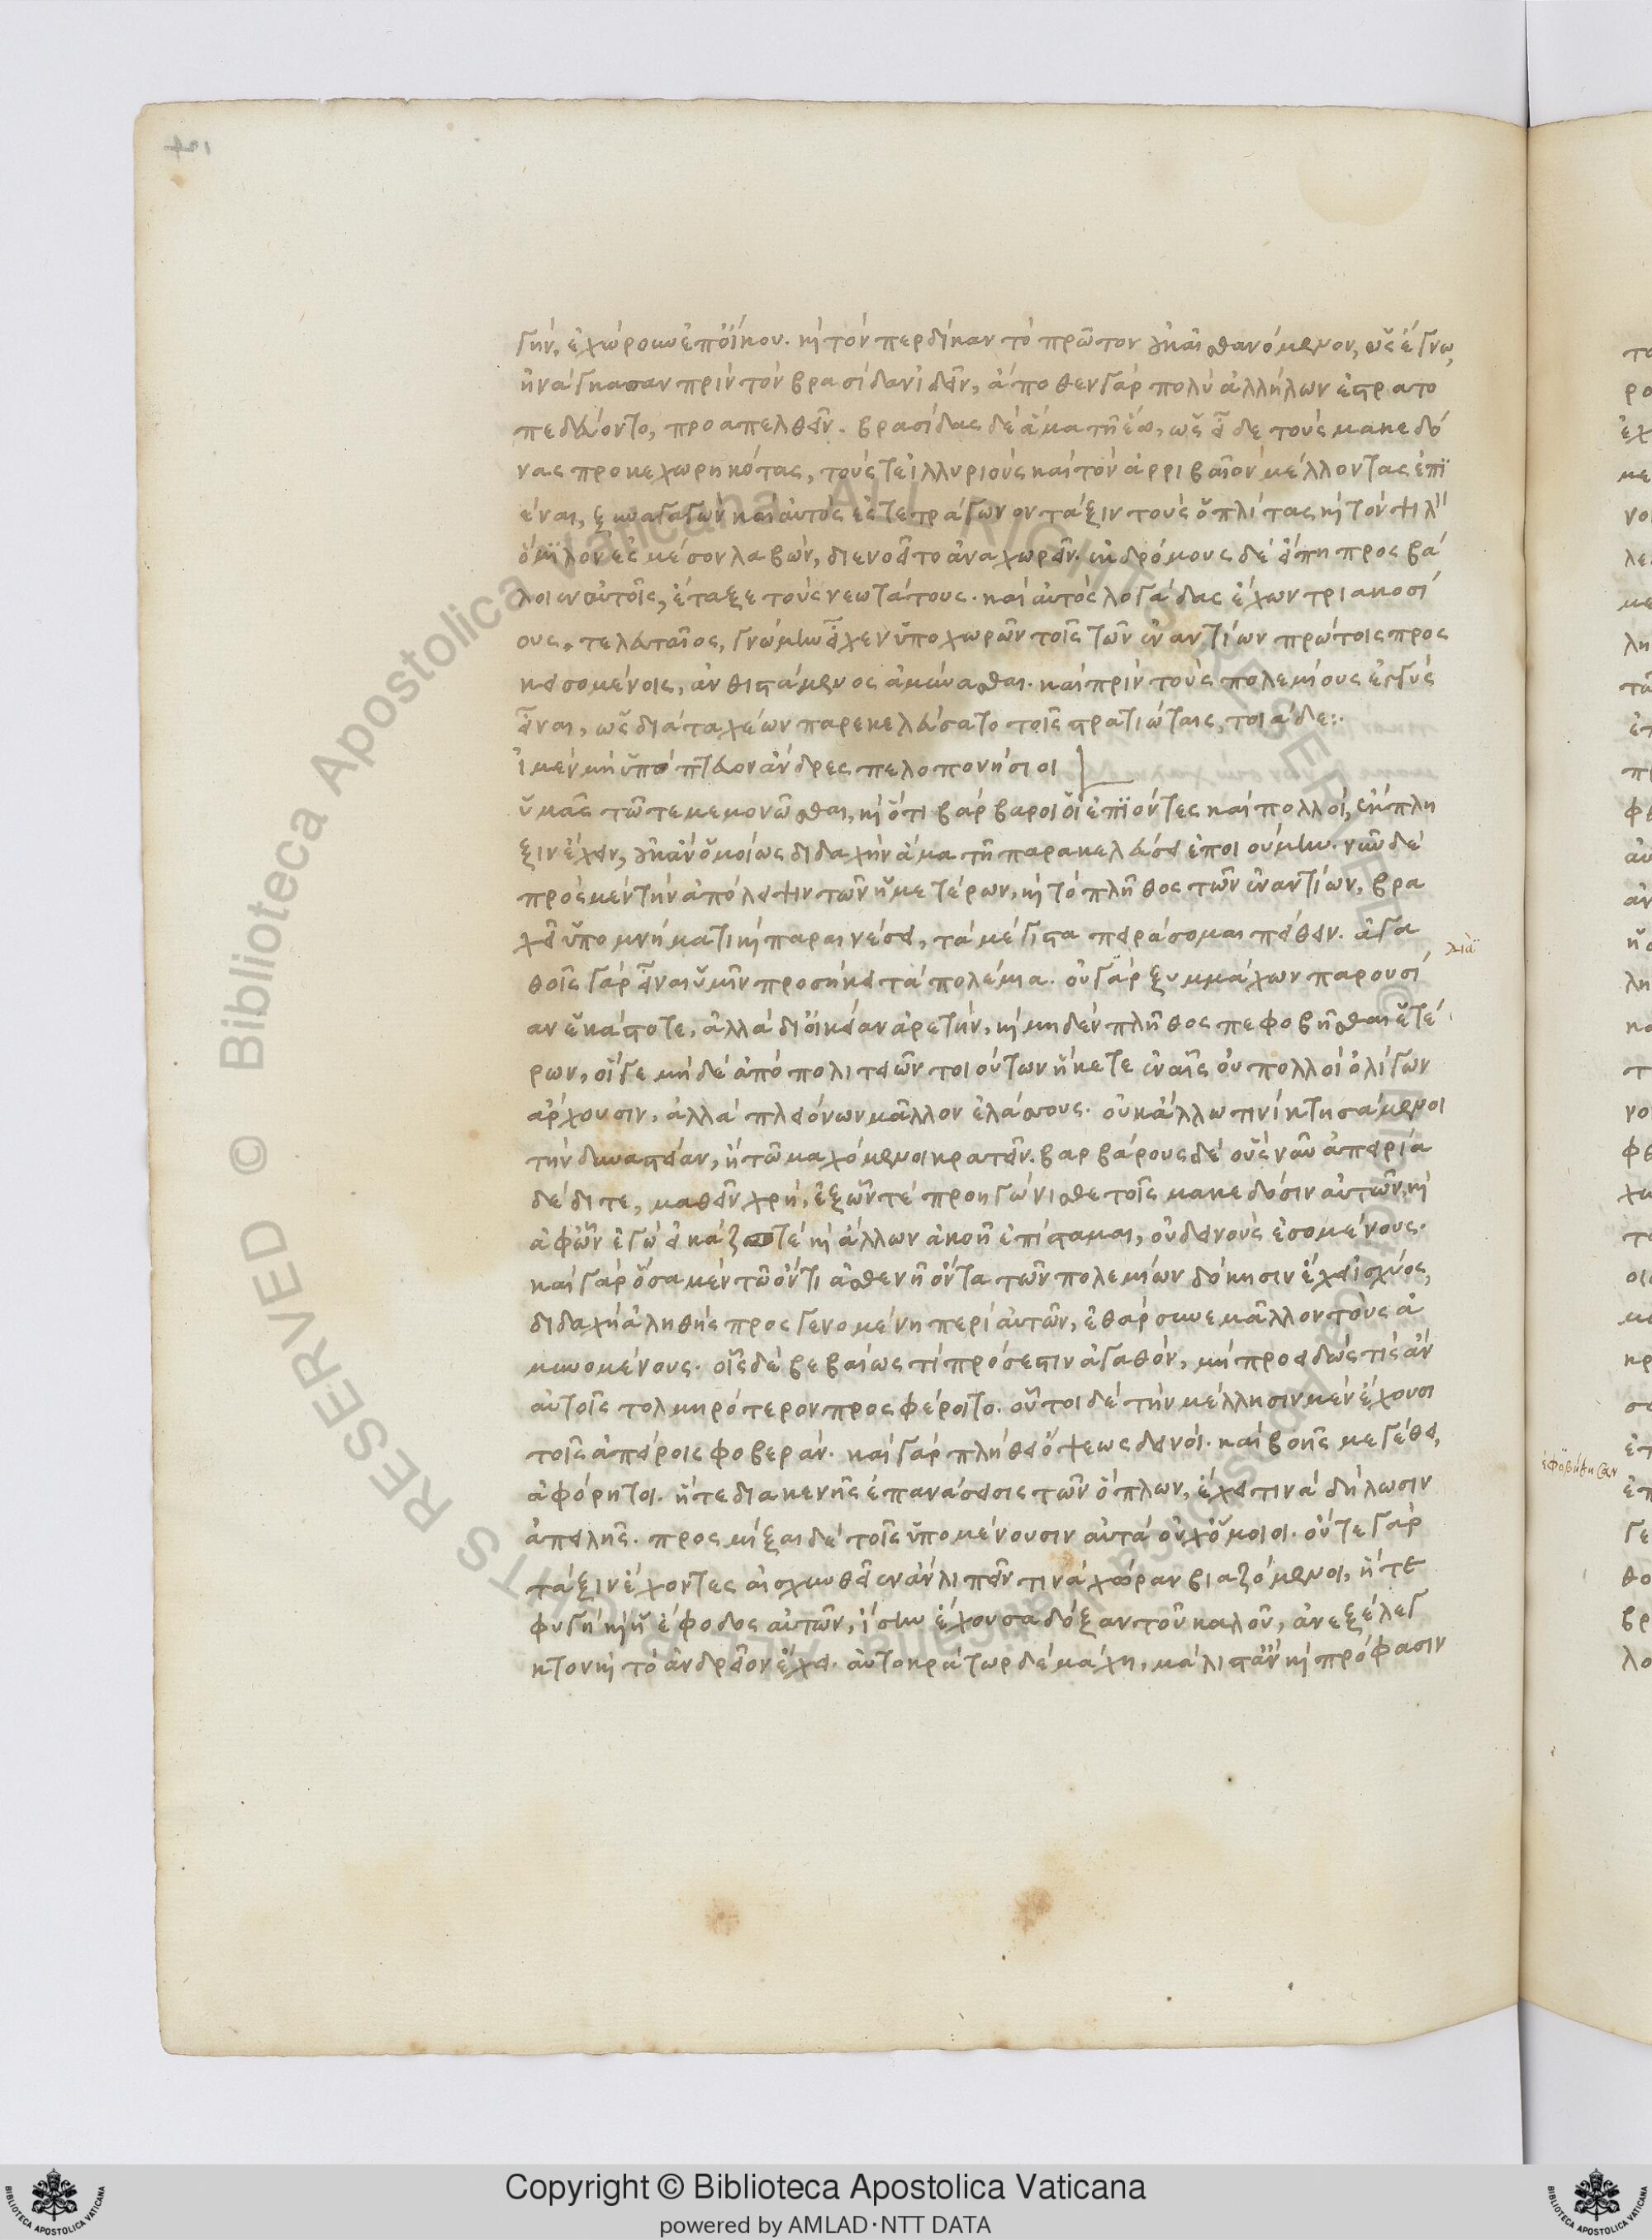 γήν, ἐχώρουν ἐπ' οἴκου. καὶ τὸν περδίκαν τὸ πρῶτον οὐκ αἰσθανόμενον, ὡς ἔγνω,
ἠνάγκασαν πρὶν τὸν βρασίδαν ἰδεῖν, ἄποθεν γὰρ πολὺ ἀλλήλων ἐστρατο
πεδεύοντο, προαπελθεῖν. βρασίδας δὲ ἅμα τῇ ἕῳ, ὡς εἶδε τοὺς μακεδό
νας προκεχωρηκότας, τούς τε ἰλλυριοὺς καὶ τὸν ἀρριβαῖον μέλλοντας ἐπϊ
έναι, ξυναγαγὼν καὶ αὐτὸς ἐς τετράγωνον τάξιν τοὺς ὁπλίτας καὶ τὸν ψιλὸν
ὅμϊλον ἐς μέσον λαβών, διενοεῖτο ἀναχωρεῖν. ἐκδρόμους δὲ εἴ πη προςβά
λοιεν αὐτοῖς, ἔταξε τοὺς νεωτάτους. καὶ αὐτὸς λογάδας ἔχων τριακοσί
ους, τελευταῖος, γνώμην εἶχεν ὑποχωρῶν τοῖς τῶν ἐναντίων πρώτοις προς
κεισομένοις, ἀνθιστάμενος ἀμύνασθαι. καὶ πρὶν τοὺς πολεμίους ἐγγὺς
εἶναι, ὡς διὰ ταχέων παρεκελεύσατο τοῖς στρατιώταις, τοιάδε:.
ἰ μὲν μὴ ὑπώπτευον ἄνδρες πελοπονήσιοι
ὑμᾶς τῷ τε μεμονῶσθαι, καὶ ὅτι βάρβαροι οἱ ἐπϊόντες καὶ πολλοί, ἔκπλη
ξιν ἔχειν, οὐκ ἂν ὁμοίως διδαχὴν ἅμα τῇ παρακελεύσει ἐποιούμην. νῦν δὲ
πρὸς μὲν τὴν ἀπόλειψιν τῶν ἡμετέρων, καὶ τὸ πλῆθος τῶν ἐναντίων, βρα
χεῖ ὑπομνήματι καὶ παραινέσει, τὰ μέγιστα πειράσομαι πείθειν. ἀγα
θοῖς γὰρ εἶναι ὑμῖν προσήκει τὰ πολέμια. οὐ γὰρ ξυμμάχων παρουσί
αν ἑκάστοτε, ἀλλὰ δι' οἰκείαν ἀρετήν, καὶ μηδὲν πλῆθος πεφοβῆσθαι ἑτέ
ρων, οἵ γε μηδὲ ἀπὸ πολιτειῶν τοιούτων ἥκετε ἐν αἷς οὐ πολλοὶ ὀλίγων
ἄρχουσιν, ἀλλὰ πλειόνων μᾶλλον ἐλάσσους. οὐκ ἄλλω τινὶ κτησάμενοι
τὴν δυναστείαν, ἢ τῷ μαχόμενοι κρατεῖν. βαρβάρους δὲ οὓς νῦν ἀπειρίᾳ
δέδιτε, μαθεῖν χρή, ἐξ ὧν τε προηγώνισθε τοῖς μακεδόσιν αὐτῶν, καὶ
ἀφ' ὧν ἐγὼ εἰκάζω τε καὶ ἄλλων ἀκοῇ ἐπίσταμαι, οὐ δεινοὺς ἐσομένους.
καὶ γὰρ ὅσα μὲν τῷ ὄντι ἀσθενῆ ὄντα τῶν πολεμίων δόκησιν ἔχει ἰσχύος,
διδαχὴ ἀληθὴς προςγενομένη περὶ αὐτῶν, ἐθάρσυνε μᾶλλον τοὺς ἀ
μυνομένους. οἷς δὲ βεβαίως τὶ πρόσεστιν ἀγαθόν, μὴ προειδώς τις ἂν
αὐτοῖς τολμηρότερον προςφέροιτο. οὗτοι δὲ τὴν μέλλησιν μὲν ἔχουσι
τοῖς ἀπείροις φοβεράν. καὶ γὰρ πλήθει ὄψεως δεινοί. καὶ βοῆς μεγέθει,
ἀφόρητοι. ἥ τε διακενῆς ἐπανάσεισις τῶν ὅπλων, ἔχει τινὰ δήλωσιν
ἀπειλῆς. προςμίξαι δὲ τοῖς ὑπομένουσιν αὐτὰ οὐχ ὅμοιοι. οὔτε γὰρ
τάξιν ἔχοντες αἰσχυνθεῖεν ἂν λιπεῖν τινὰ χώραν βιαζόμενοι, ἥ τε
φυγὴ καὶ ἡ ἔφοδος αὐτῶν, ἴσην ἔχουσα δόξαν τοῦ καλοῦ, ἀνεξέλεγ
κτον καὶ τὸ ἀνδρεῖον ἔχει. αὐτοκράτωρ δὲ μάχη, μάλιστ' ἂν καὶ πρόφασιν
ἐφοβήθησαν
Copyright © Biblioteca Apostolica Vaticana
powered by AMLAD·NTT DATA